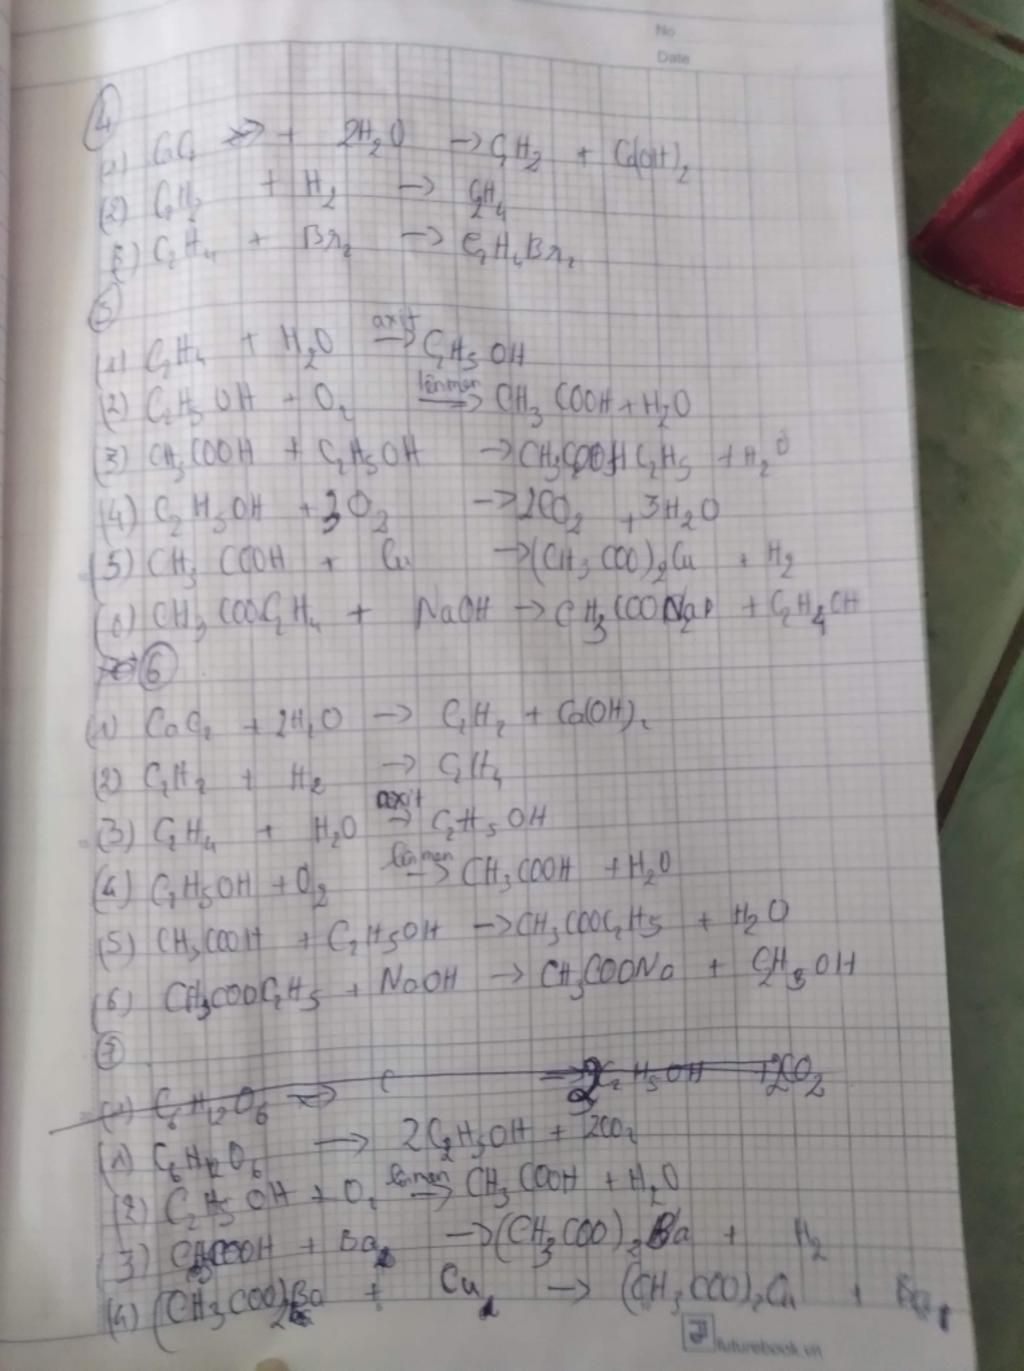 No
Date
4
(1) CaC2 + 2H2O → C2H2 + Ca(OH)2
(2) C2H2 + H2 → C2H4
(3) C2H4 + Br2 → C2H4Br2
5
(1) C2H4 + H2O axit → C2H5OH
(2) C2H5OH + O2 lên men → CH3COOH + H2O
(3) CH3COOH + C2H5OH → CH3COOH C2H5 + H2O
(4) C2H5OH + 3O2 → 2CO2 + 3H2O
(5) CH3COOH + Cu → (CH3COO)2Cu + H2
(6) CH3COOC2H4 + NaOH → CH3COONa + C2H4OH
6
(1) CaC2 + 2H2O → C2H2 + Ca(OH)2
(2) C2H2 + H2 → C2H4
(3) C2H4 + H2O axit → C2H5OH
(4) C2H5OH + O2 lên men → CH3COOH + H2O
(5) CH3COOH + C2H5OH → CH3COOC2H5 + H2O
(6) CH3COOC2H5 + NaOH → CH3COONa + C2H5OH
7
(1) C6H12O6 → 2C2H5OH + 2CO2
(1) C6H12O6 → 2C2H5OH + 2CO2
(2) C2H5OH + O2 lên men → CH3COOH + H2O
(3) CH3COOH + Ba → (CH3COO)2Ba + H2
(4) (CH3COO)2Ba + Cu → (CH3COO)2Cu +
futurebook.vn